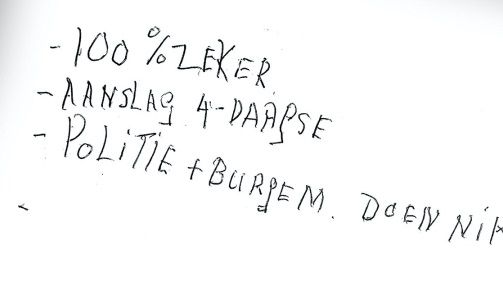 - 100 % ZEKER
- AANSLAG 4-DAAGSE
- POLITIE + BURGEM. DOEN